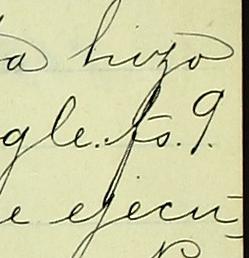 a hizo
gle. fs. 9.
e ejecu-